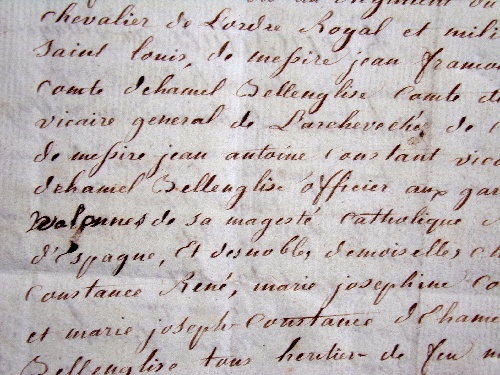 regiment du
chevalier de Lordre Royal et mili
Saint louis, de messire jean francoi
comte dehamel Bellenglise comte de
vicaire general de Larcheveche de C
de messire jean antoine Constant vico
dehamel Bellenglise officier aux gar
Valonnes de sa magesté Catholique
d'Espagne, Et des nobles demoiselles
Constance René, marie josephine Co
et marie joseph Constance dhame
Bellenglise tous heritier de feu m